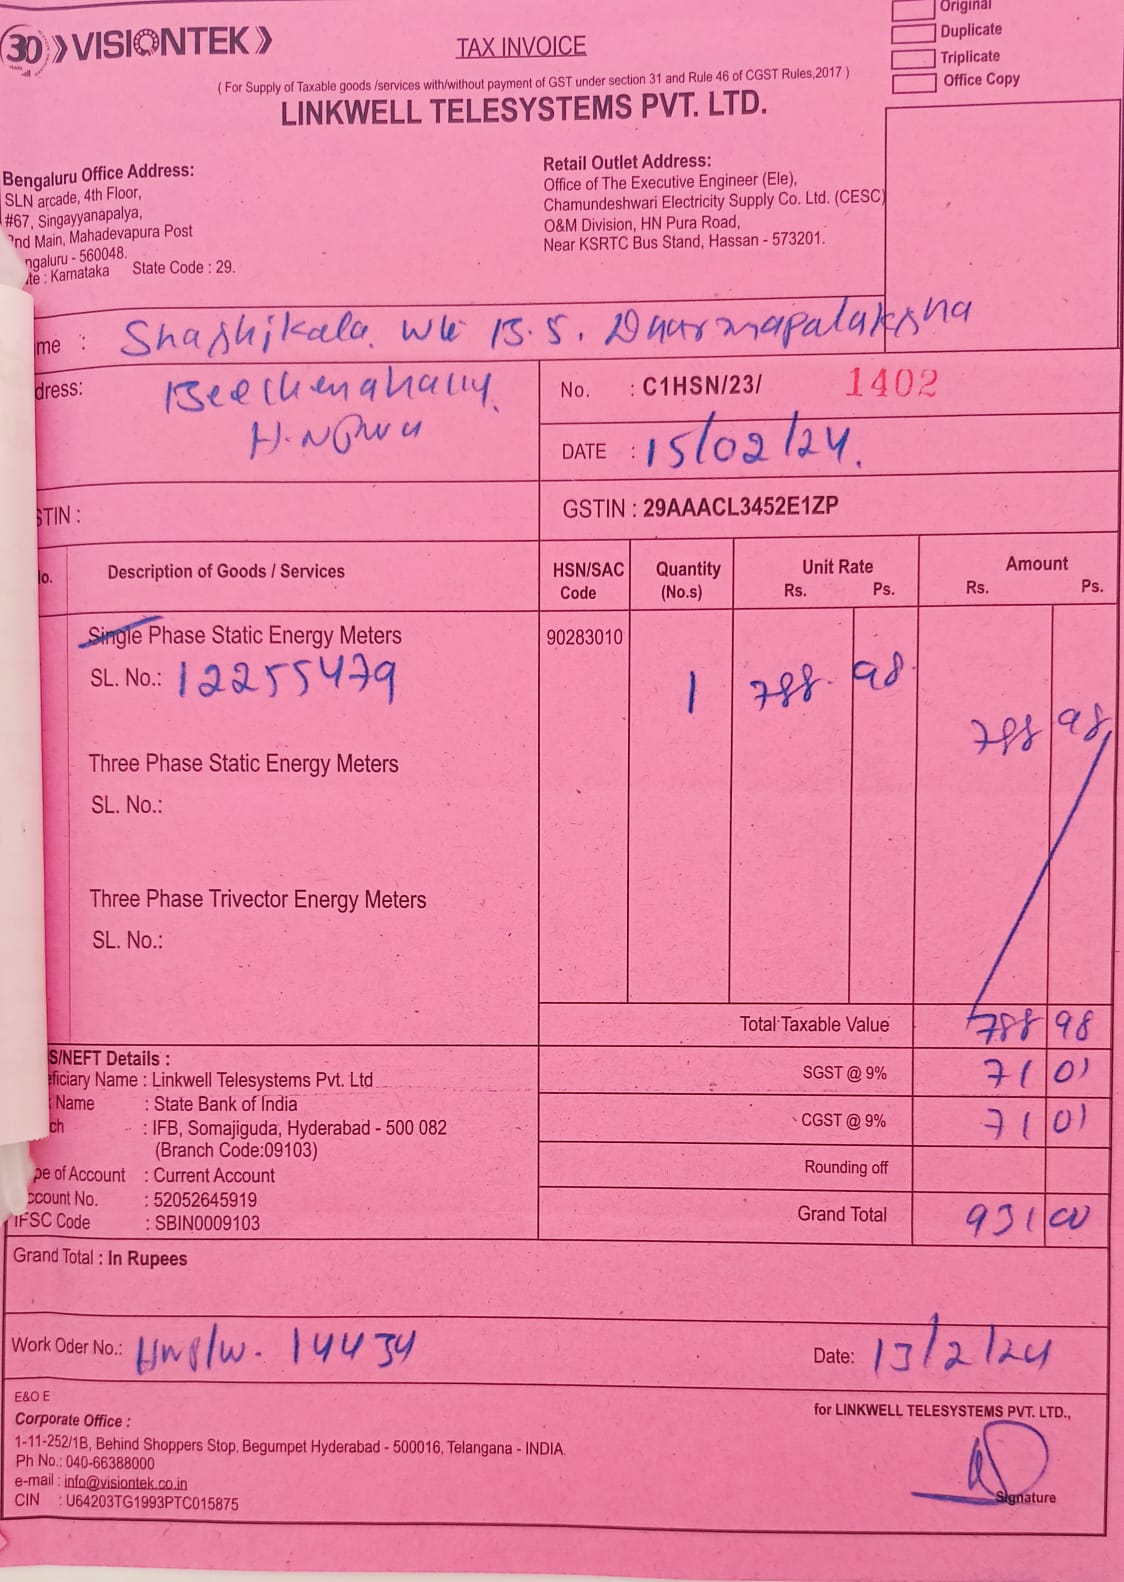 30 VISIONTEK
TAX INVOICE
Original
Duplicate
Triplicate
Office Copy
( For Supply of Taxable goods /services with/without payment of GST under section 31 and Rule 46 of CGST Rules,2017 )
LINKWELL TELESYSTEMS PVT. LTD.
Bengaluru Office Address:
SLN arcade, 4th Floor,
#67, Singayyanapalya,
2nd Main, Mahadevapura Post
ngaluru - 560048.
te : Karnataka State Code : 29.
Retail Outlet Address:
Office of The Executive Engineer (Ele),
Chamundeshwari Electricity Supply Co. Ltd. (CESC)
O&M Division, HN Pura Road,
Near KSRTC Bus Stand, Hassan - 573201.
me : Shashikala. B.S. Dharmapalaksha
dress:
H.N
No. : C1HSN/23/ 1402
DATE : 15/02/24.
STIN :
GSTIN : 29AAACL3452E1ZP
o. Description of Goods / Services HSN/SAC Code Quantity (No.s) Unit Rate Rs. Ps. Amount Rs. Ps.
Single Phase Static Energy Meters 90283010
SL. No.: 12255479 1 788. 98.
788 98
Three Phase Static Energy Meters
SL. No.:
Three Phase Trivector Energy Meters
SL. No.:
Total Taxable Value 788 98
SGST @ 9% 71 01
CGST @ 9% 71 01
Rounding off
Grand Total 931 00
S/NEFT Details :
eficiary Name : Linkwell Telesystems Pvt. Ltd
Name : State Bank of India
ch : IFB, Somajiguda, Hyderabad - 500 082
(Branch Code:09103)
pe of Account : Current Account
ccount No. : 52052645919
IFSC Code : SBIN0009103
Grand Total : In Rupees
Work Oder No.: 14434
Date: 13/2/24
E&O E
Corporate Office :
1-11-252/1B, Behind Shoppers Stop, Begumpet Hyderabad - 500016, Telangana - INDIA
Ph No.: 040-66388000
e-mail : info@visiontek.co.in
CIN : U64203TG1993PTC015875
for LINKWELL TELESYSTEMS PVT. LTD.,
Signature